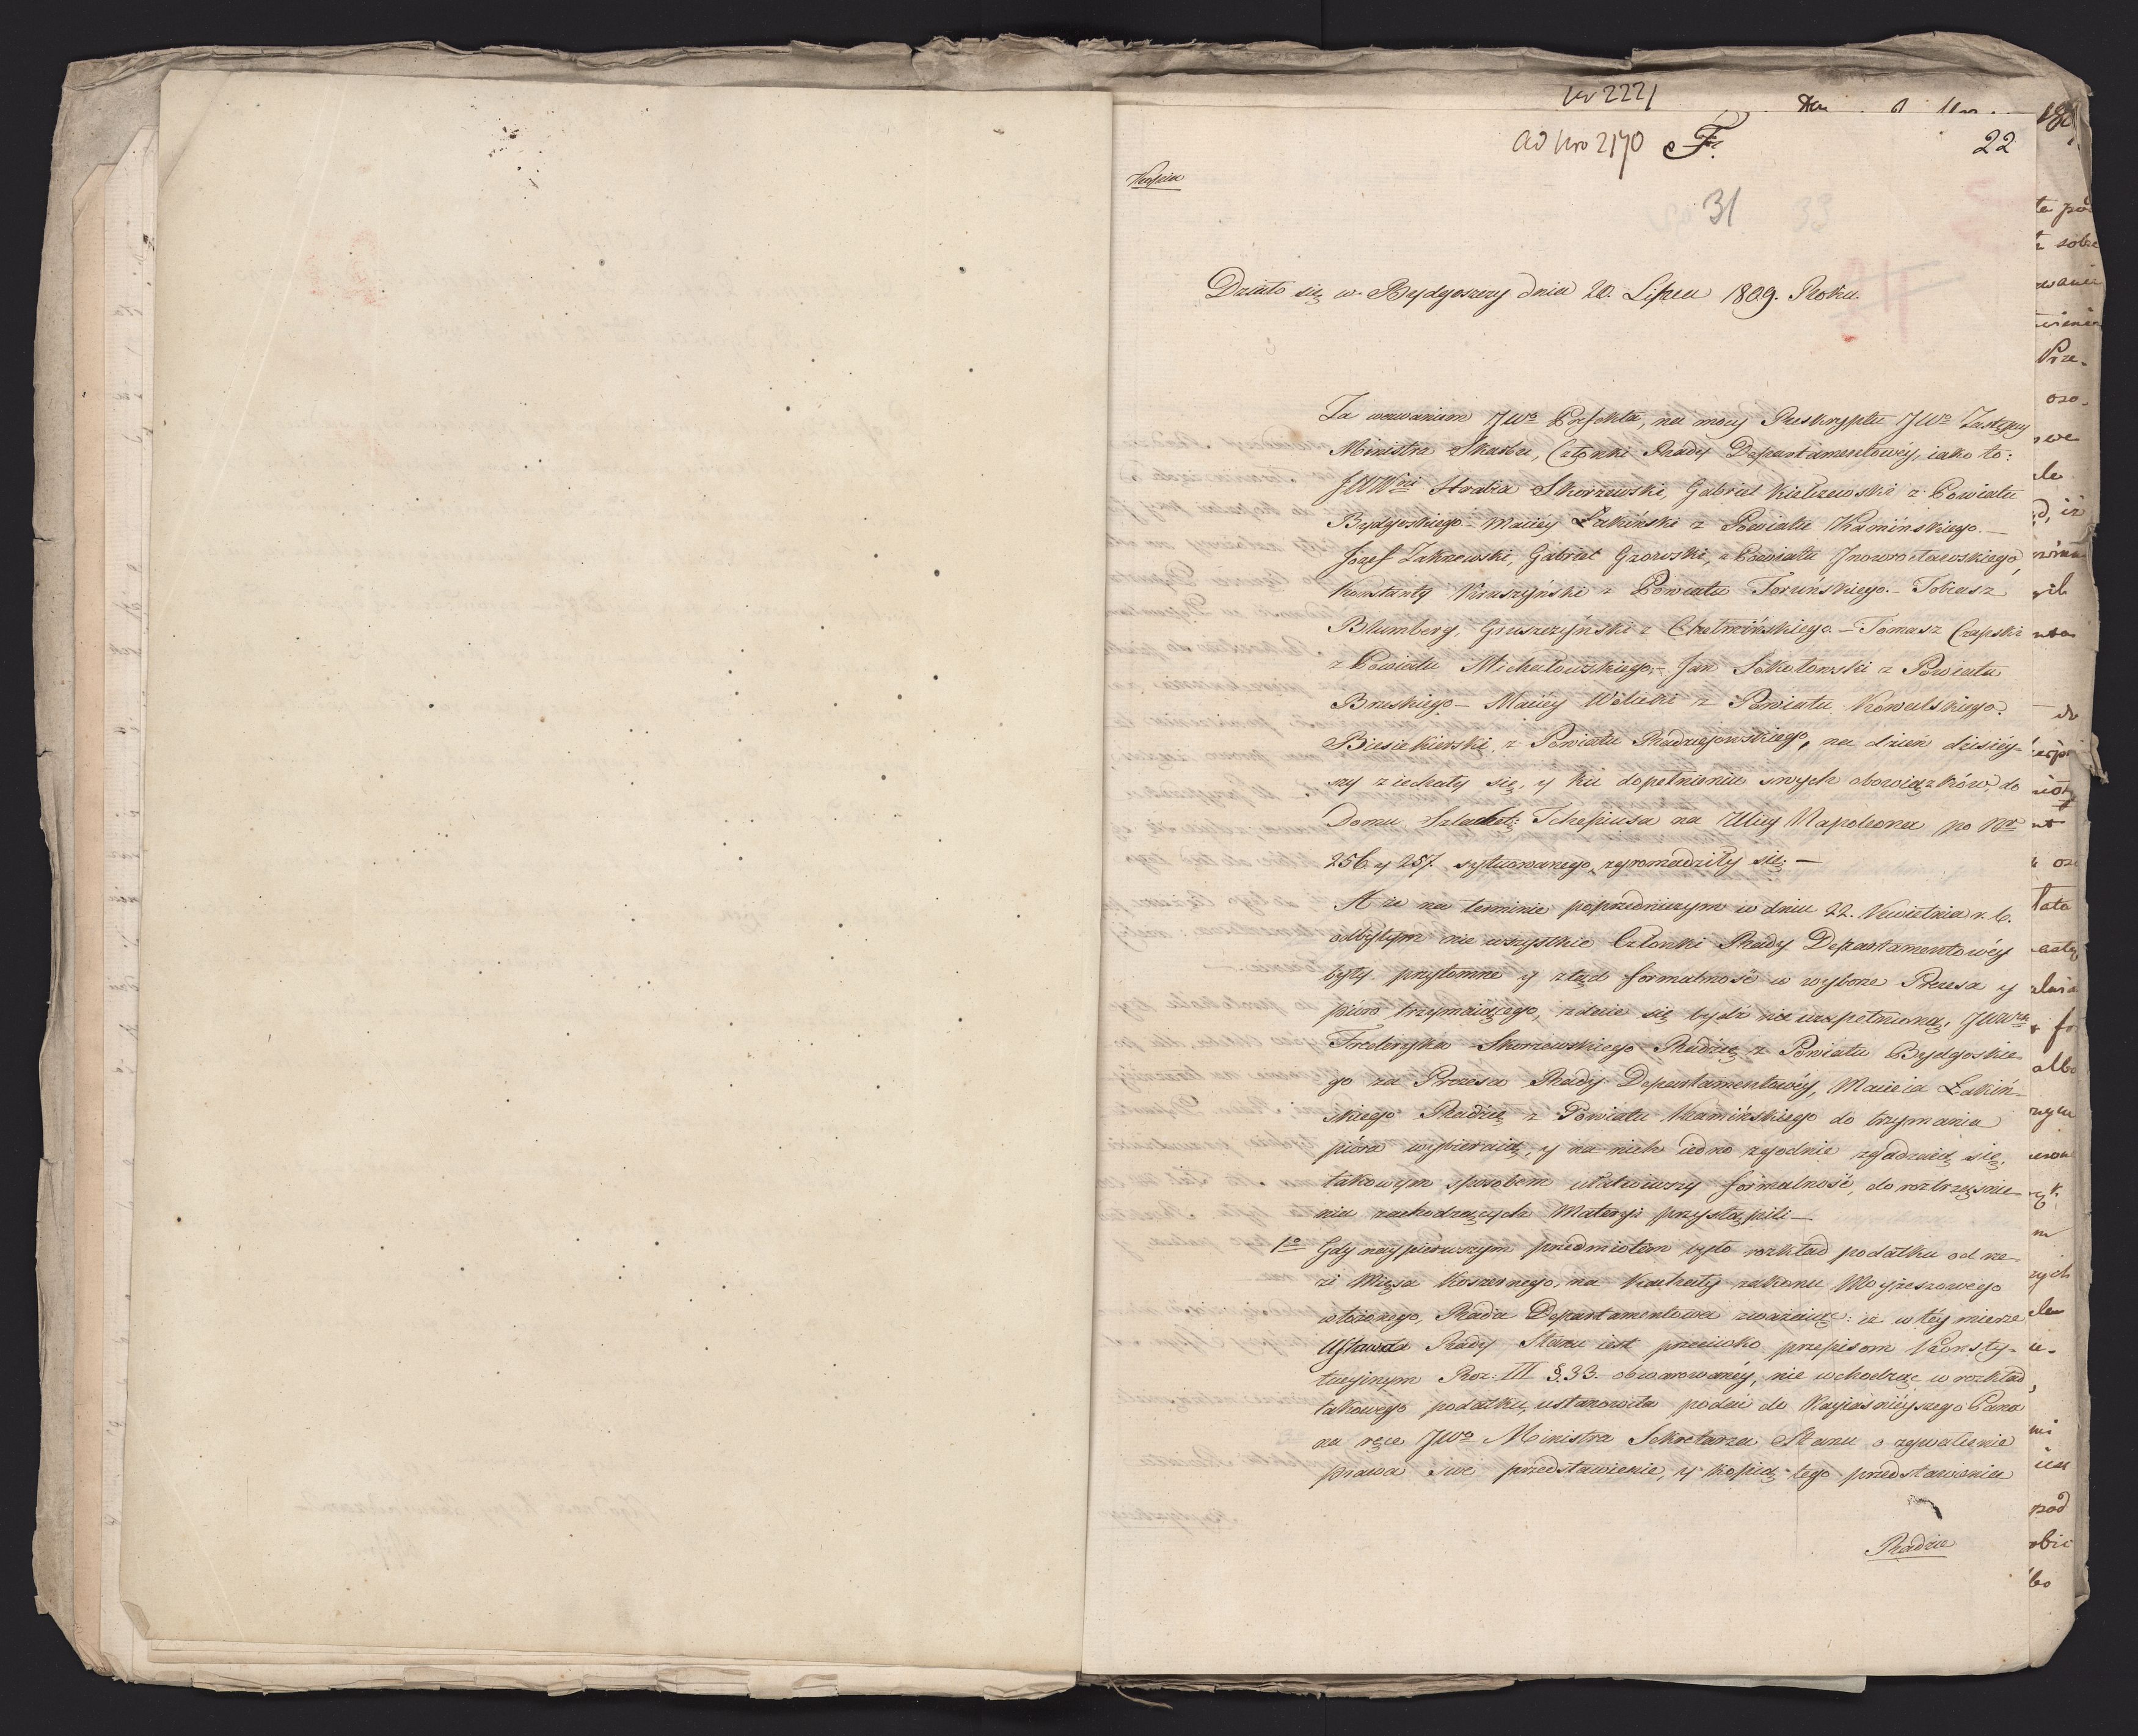 Nr 2221
ad Nro 2170 F.
22
Kopia
31
33
Działo się w Bydgoszczy dnia 20. Lipca 1809. Roku.
Za wezwaniem JWo Prefekta, na mocy Reskryptu JWo Zastępcy
Ministra Skarbu, Członki Rady Departamentowéy, iako to:
JWWni Hrabia Skorzewski, Gabriel Kielczewski z Powiatu
Bydgoskiego – Maciéy Łakiński z Powiatu Kamińskiego. –
Jozef Zakrzewski, Gabriel Gzowski, z Powiatu Jnowrocławskiego,
Konstanty Kruszyński z Powiatu Toruńskiego. – Tobiasz
Blumberg, Gruszczyński z Chełmińskiego. – Tomasz Czapski
z Powiatu Michałowskiego, – Jan Sokołowski z Powiatu
Brzeskiego – Maciéy Wolicki z Powiatu Kowalskiego. –
Biesiekierski z Powiatu Radziejowskiego, na dzień dzisiéy-
szy ziechały się, y ku dopełnieniu swych obowiązków do
Domu Szlachet: Schepiusa na Ulicy Napoleona po Nr
256 y 257. sytuowanego, zgromadziły się. –
A że na terminie poprzedniczym w dniu 22. Kwietnia r. b.
odbytym nie wszystkie Członki Rady Departamentowéy
były przytomne y ztąd formalność w wyborze Prezesa y
pióro trzymaiącego, zdaie się bydź nie uzupełnioną,
Fryderyka Skorzewskiego Radzcę z Powiatu Bydgoskie-
go za Prezesa Rady Departamentowéy, Macieia Łakiń-
skiego Radzcę z Powiatu Kamińskiego do trzymania
pióra wybieraią, y na nich iedno zgodnie zgadzaią się,
takowym sposobem ułatwiwszy formalność, do roztrząśnie-
nia zachodzących Materyi przystąpili –
1o Gdy naypierwszym przedmiotem było rozkład podatku od rze-
zi Mięsa Koszernego, na Kachały zakonu Moyżeszowego
włożonego, Rada Departamentowa zważaiąc: iż w téy mierze
Ustawa Rady Stanu iest przeciwko przepisom Konsty-
tucyinym Roz: III §. 33. obwarowanéy, nie wchodząc w rozkład
takowego podatku, ustanowiła podać do Nayiaśniéyszego Pana
na ręce JWo Ministra Sekretarza Stanu o zgwałcenie
prawa swe przedstawienie, y kopią tego przedstawienia
Radzie